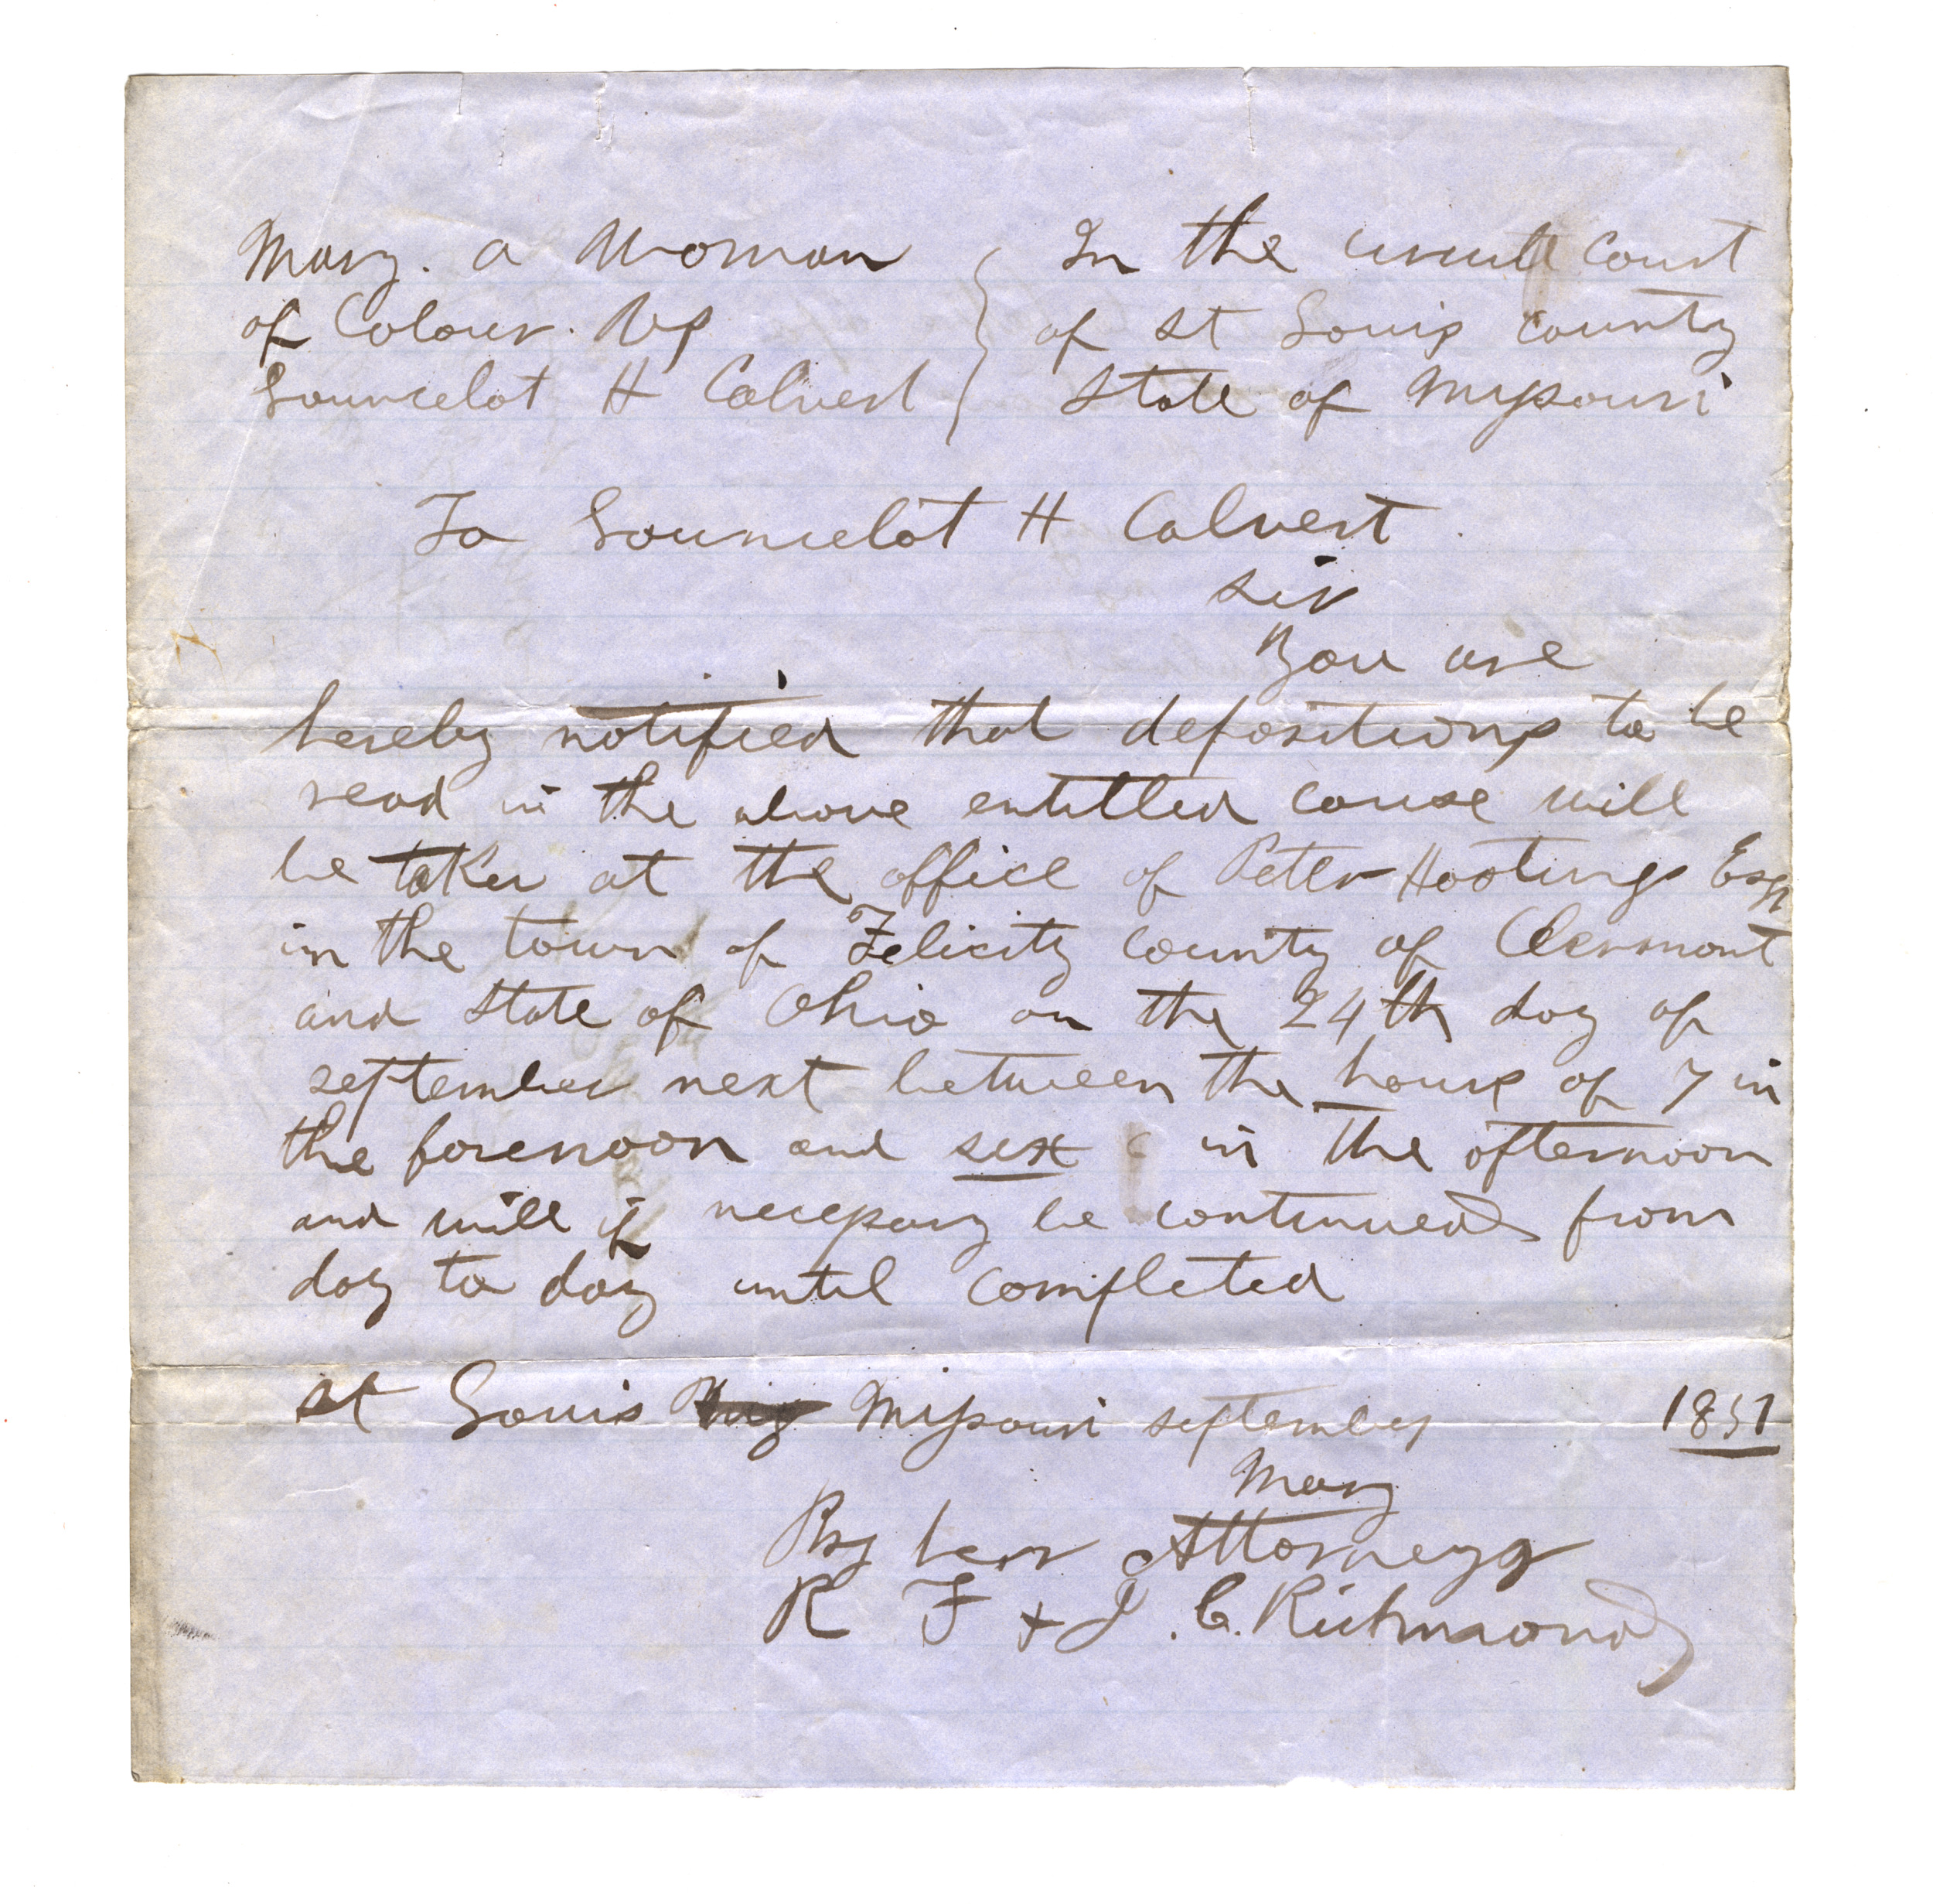 Mary. a Woman
of Colour. vs
Launcelot H Calvert
In the circuit Court
of St Louis County
State of Missouri
To Launcelot H Calvert.
Sir
You are
hereby notified that depositions to be
read in the above entitled cause will
be taken at the office of Peter Hastings Esqr
in the town of Felicity County of Clermont
and State of Ohio on the 24th day of
September next between the hours of 7 in
the forenoon and six in the afternoon
and will if necessary be continued from
day to day until completed
St Louis Missouri September 1851
Mary
By her Attorneys
R F & J. C. Richmond